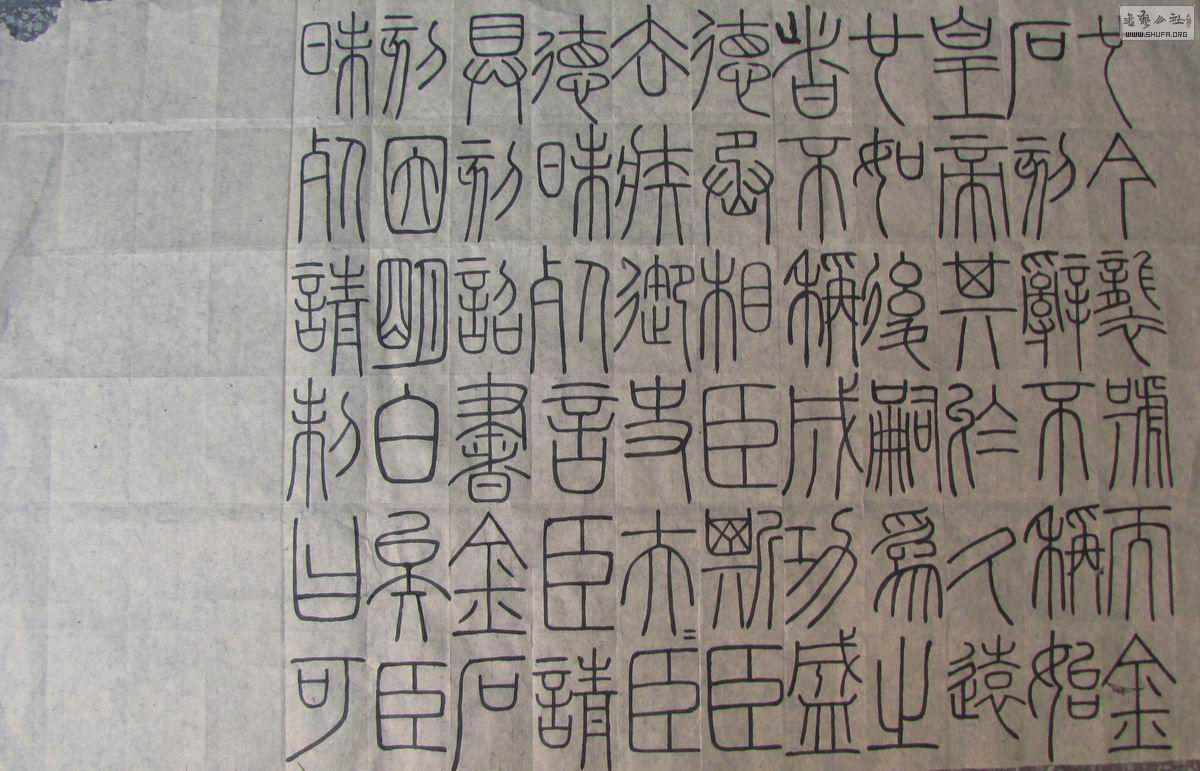 也今襲號而金
石刻辭不稱始
皇帝其於久遠
也如後嗣為之
者不稱成功盛
德丞相臣斯臣
去疾御史夫=臣
德昧死言臣請
具刻詔書金石
刻因明白矣臣
昧死請制曰可
書藝公社
WWW.SHUFA.ORG